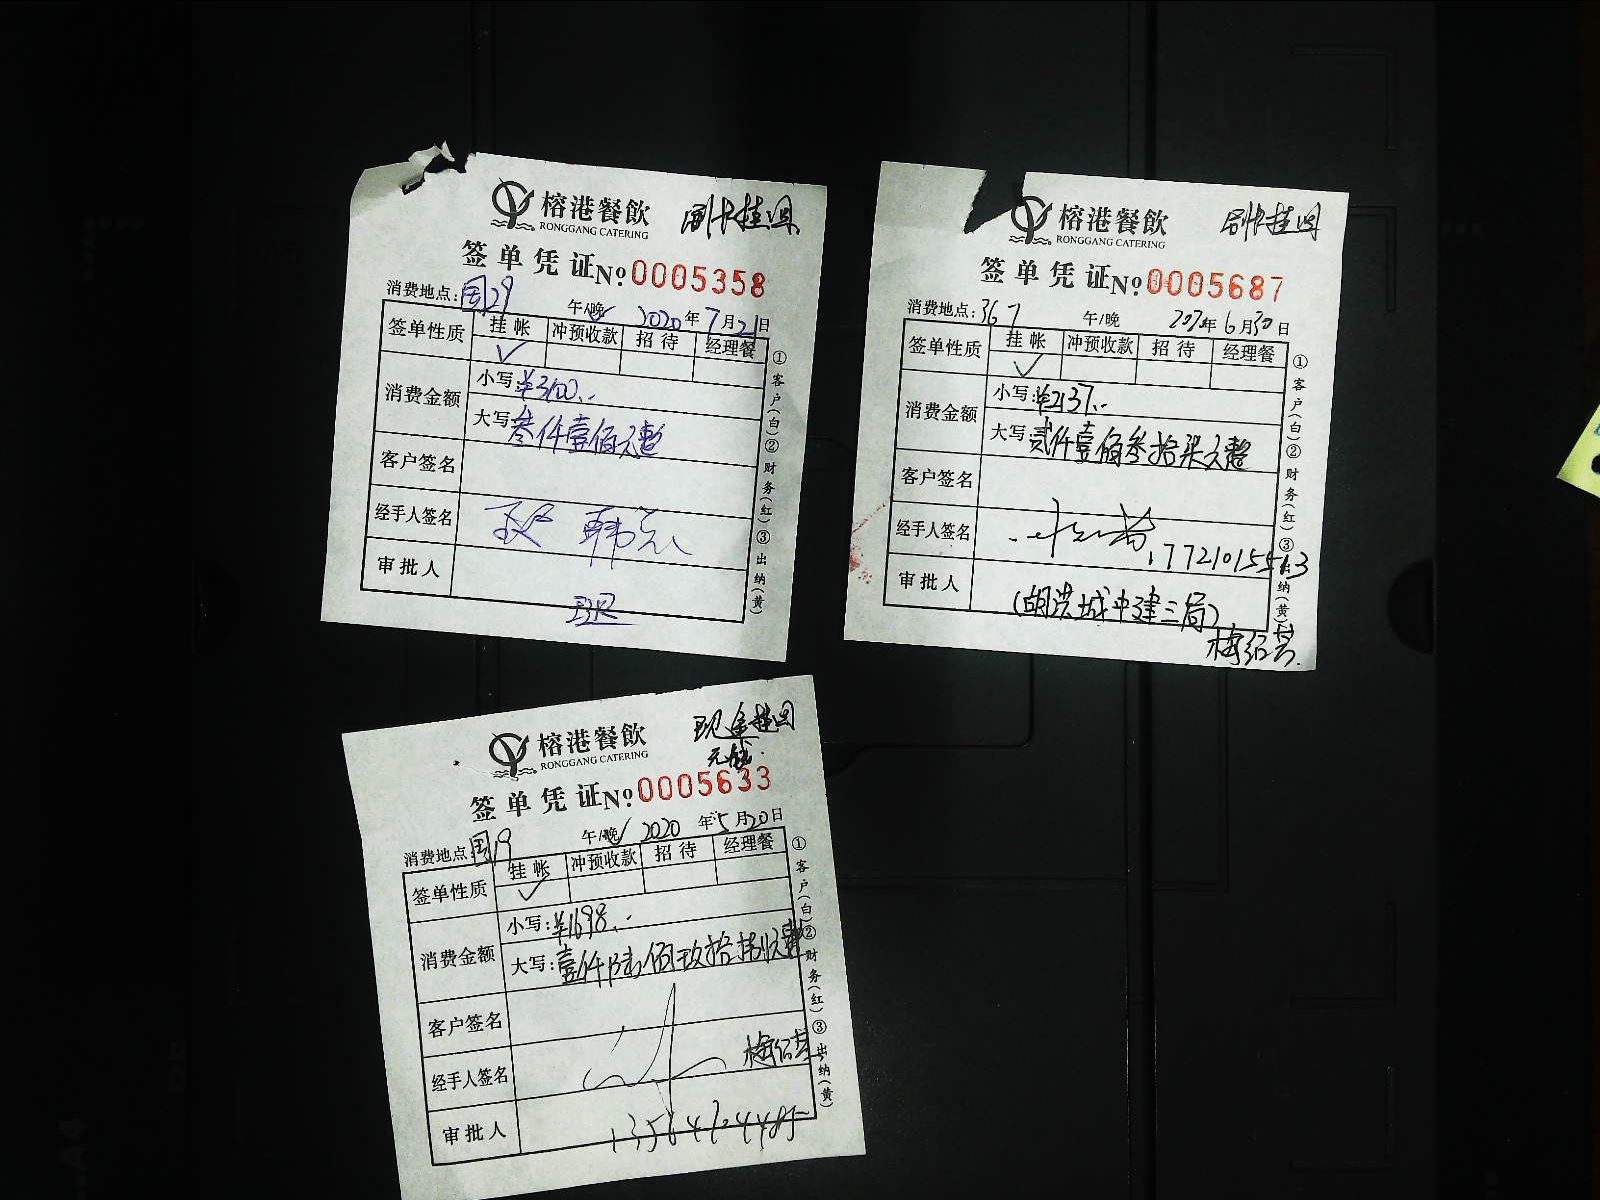 榕港餐飲
RONGGANG CATERING
刷卡挂回
签单凭证 No: 0005358
消费地点: 国29 午/晚 2020年7月21日
签单性质 挂帐 冲预收款 招待 经理餐
✓
消费金额
小写: ¥3100.-
大写 叁仟壹佰元整
客户签名
经手人签名 韩
审批人
①客户(白)②财务(红)③出纳(黄)
榕港餐飲
RONGGANG CATERING
刷卡挂回
签单凭证 No: 0005687
消费地点: 367 午/晚 2020年6月30日
签单性质 挂帐 冲预收款 招待 经理餐
✓
消费金额
小写: ¥2137.-
大写: 贰仟壹佰叁拾柒元整
客户签名
经手人签名
17721015513
审批人 (胡洪城中建三局)
梅绍芸
①客户(白)②财务(红)③出纳(黄)
榕港餐飲
RONGGANG CATERING
现金挂回
签单凭证 No: 0005633
消费地点 国19 午/晚 2020年5月20日
签单性质 挂帐 冲预收款 招待 经理餐
✓
消费金额
小写: ¥1698.-
大写: 壹仟陆佰玖拾捌元整
客户签名
经手人签名 梅绍芸
审批人
①客户(白)②财务(红)③出纳(黄)